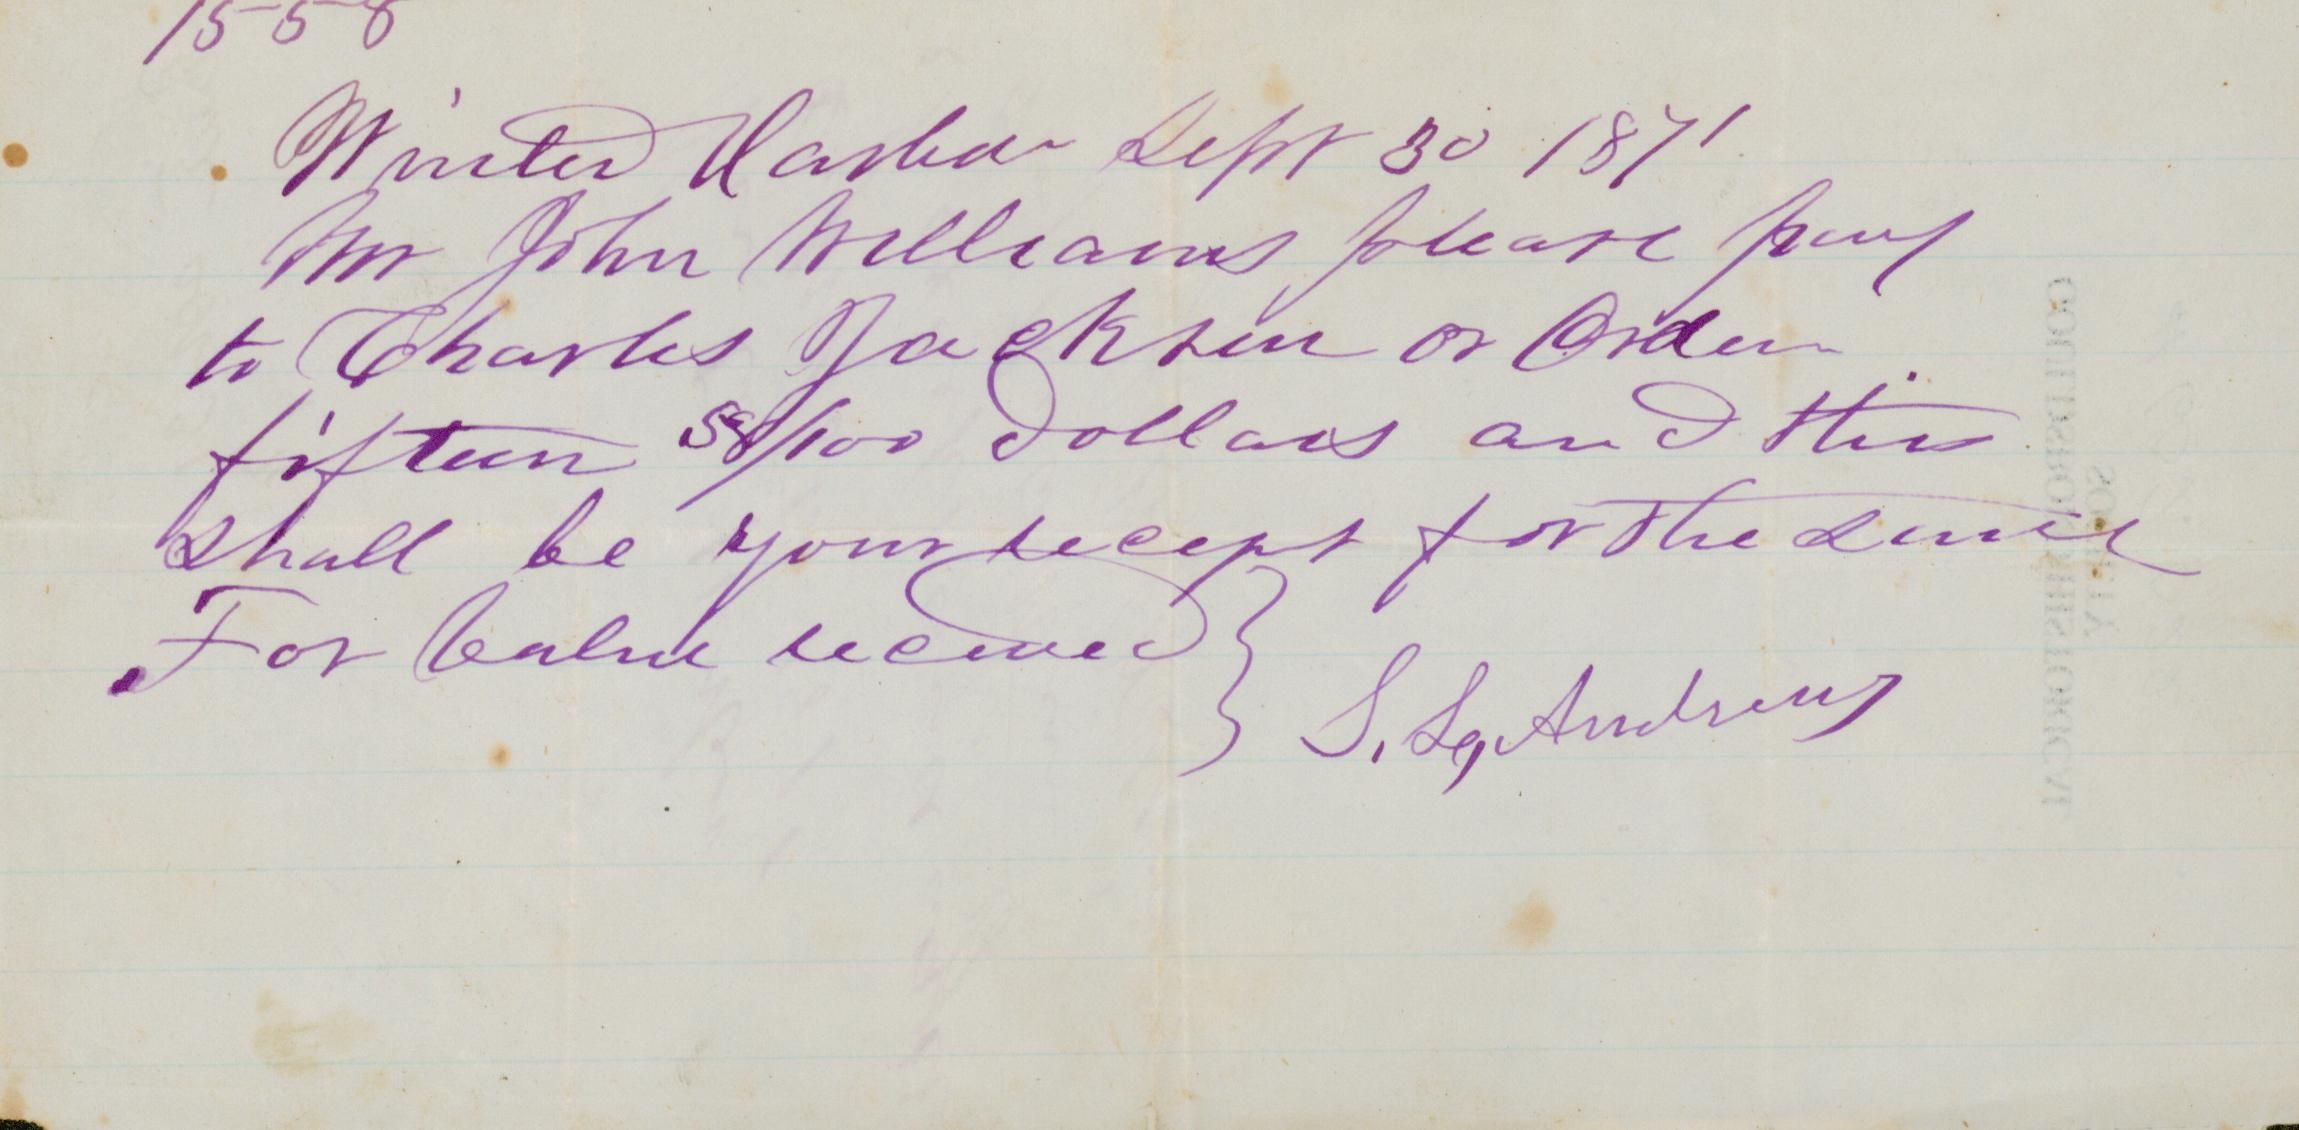 15-58
Winter Harbor Sept 30 1871
Mr John Williams please pay
to Charles Jackson or Order
fifteen 58/100 dollars and this
shall be your recept for the same
For Value received } S, L, Andrews
GOULDSBORO HISTORICAL
SOCIETY